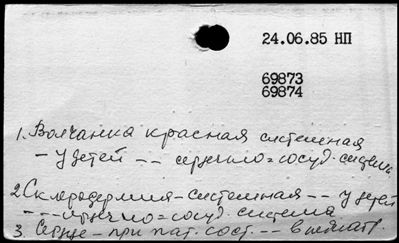 24.06.85 НП
69873
69874
1. Волчанка красная системная
- у детей -- сердечно=сосуд. система
2. Склеродермия - системная -- у детей
-- сердечно=сосуд. система
3. Сердце - при пат. сост. -- в